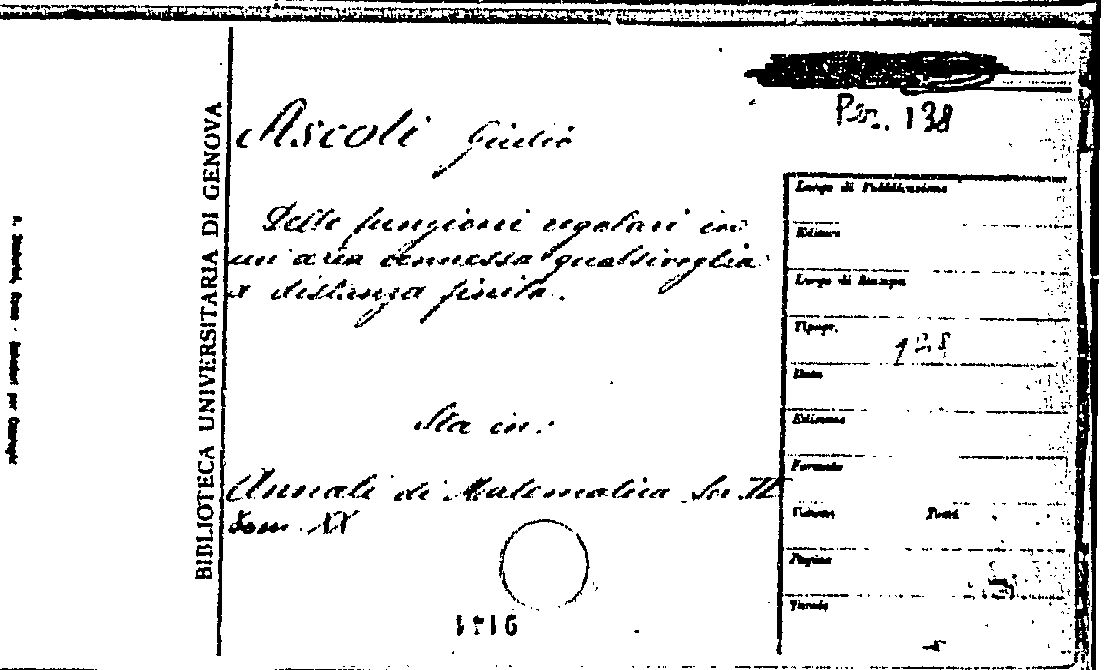 Per. 138
BIBLIOTECA UNIVERSITARIA DI GENOVA
Ascoli Giulio
Delle funzioni regolari in
un'area connessa qualsivoglia
a distanza finita.
Sta in:
Annali di Matematica Ser II
Tom. XX
Luogo di Pubblicazione
Editore
Luogo di Stampa
Tipogr.
Data
Edizione
Formato
Volumi
Pagine
Tavole